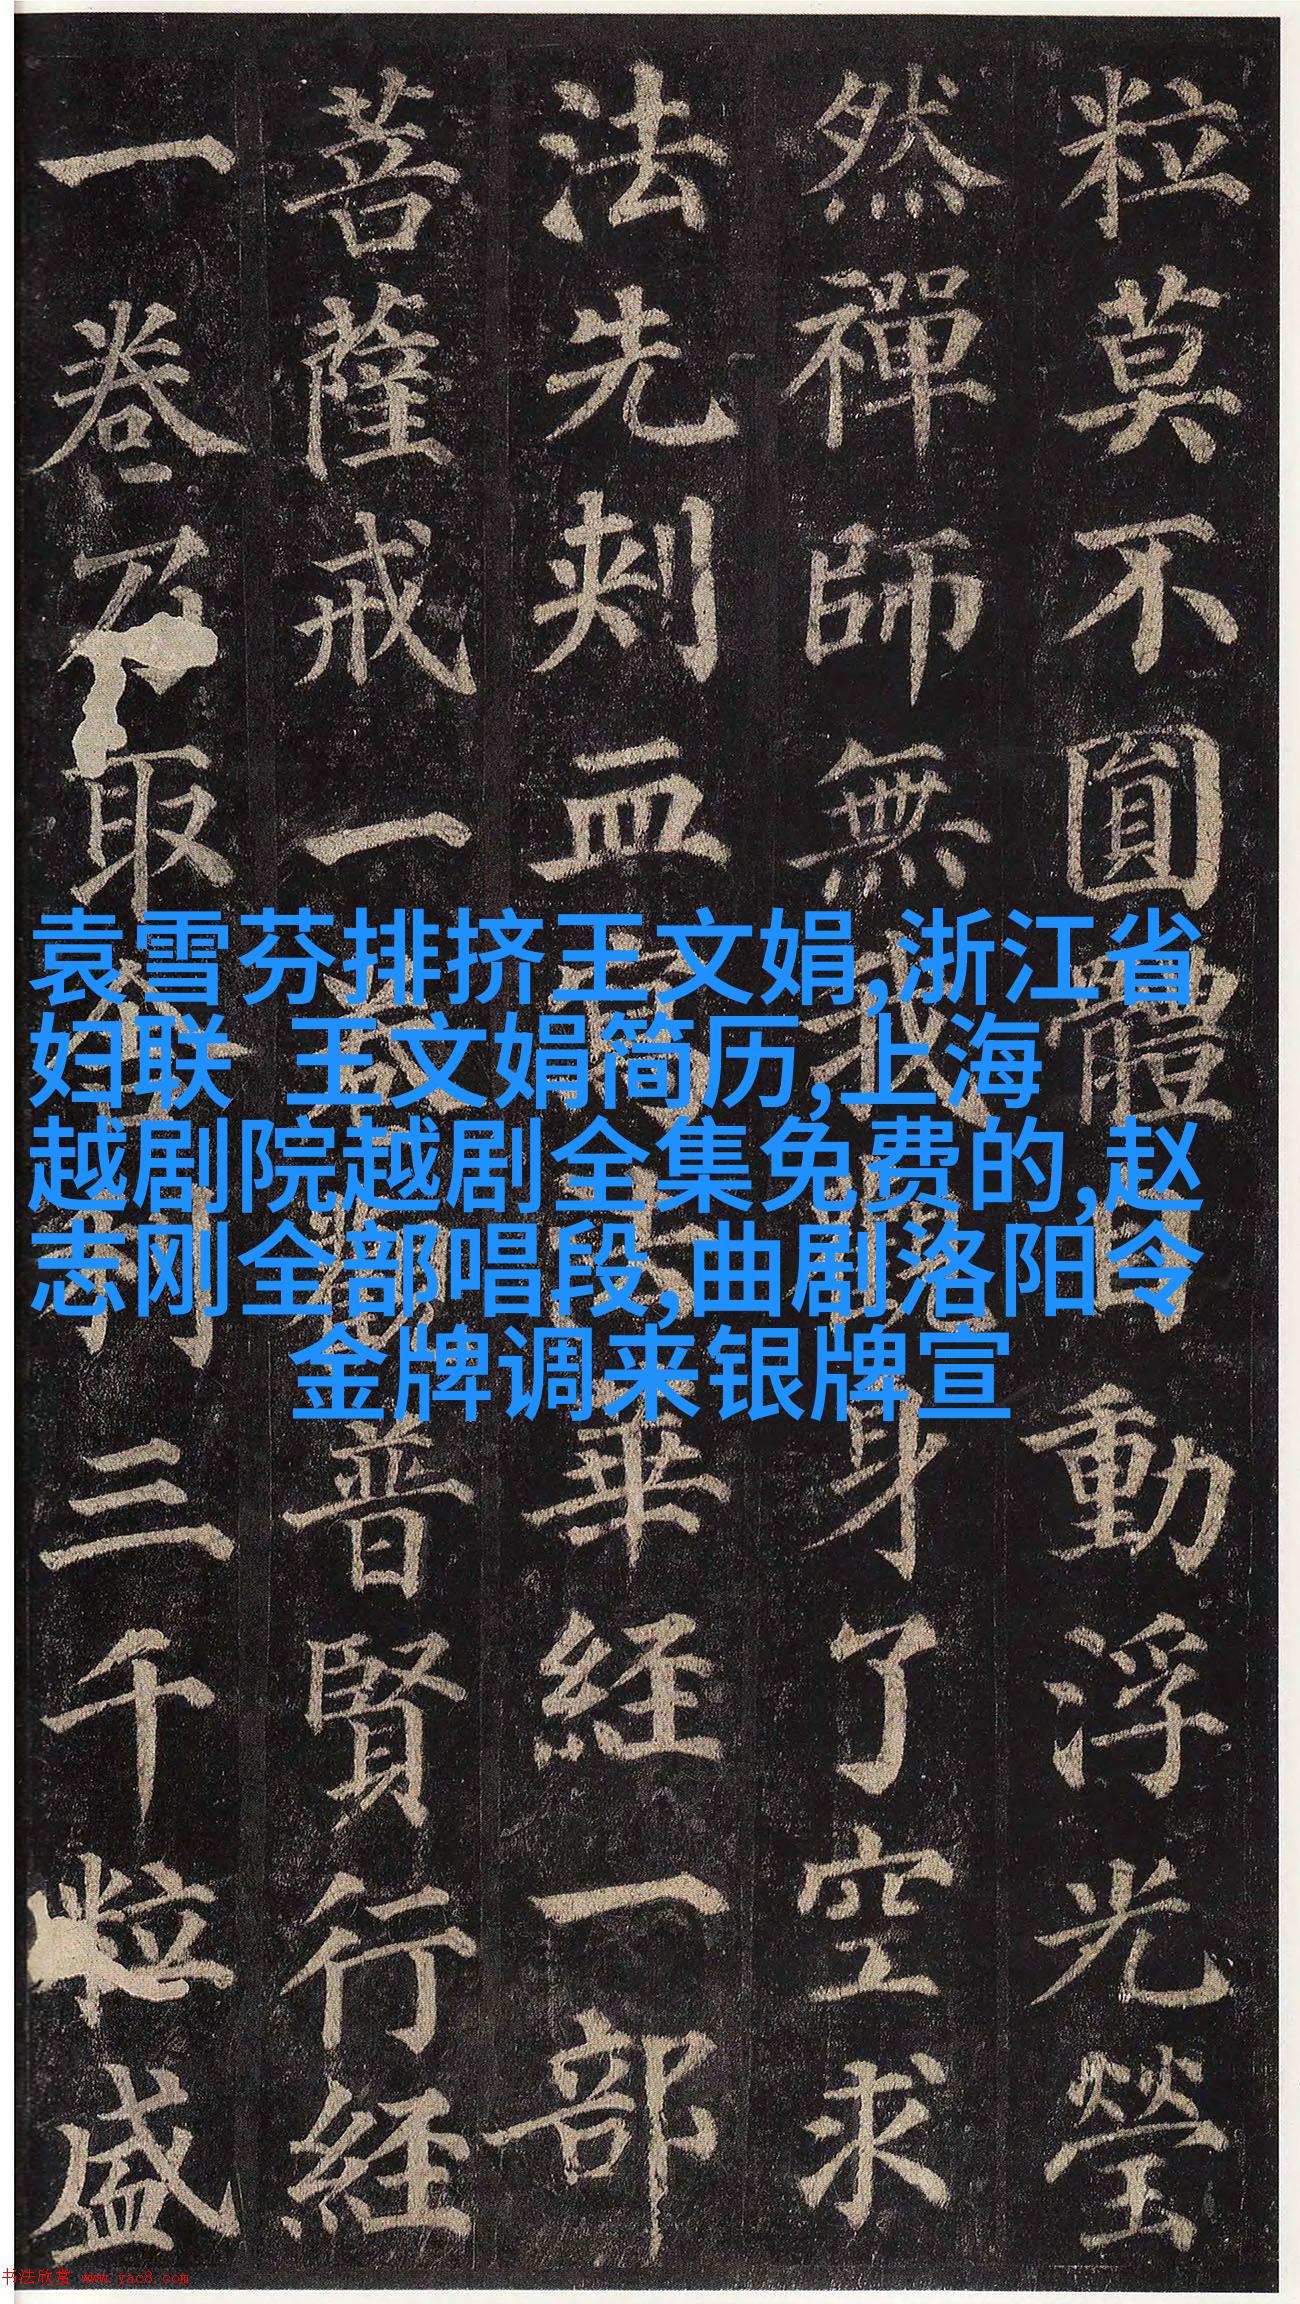 粒莫不圓體自動浮光瑩
然禪師無我觀身了空求
法先刺血寫法華経一部
菩薩戒一卷觀普賢行経
一卷乃取舍利三千粒盛
袁雪芬排挤王文娟,浙江省
妇联 王文娟简历,上海
越剧院越剧全集免费的,赵
志刚全部唱段,曲剧洛阳令
金牌调来银牌宣
书法欣赏 www.yac8.com